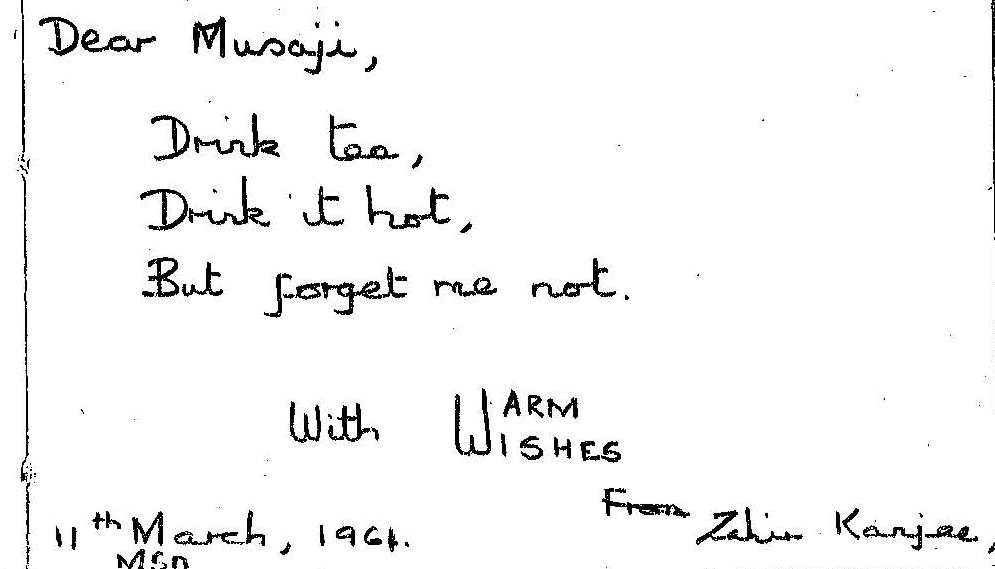 Dear Musaji,
Drink tea,
Drink it hot,
But forget me not.
With WARM
WISHES
From Zahir Karjee,
11th March, 1961.
MSA